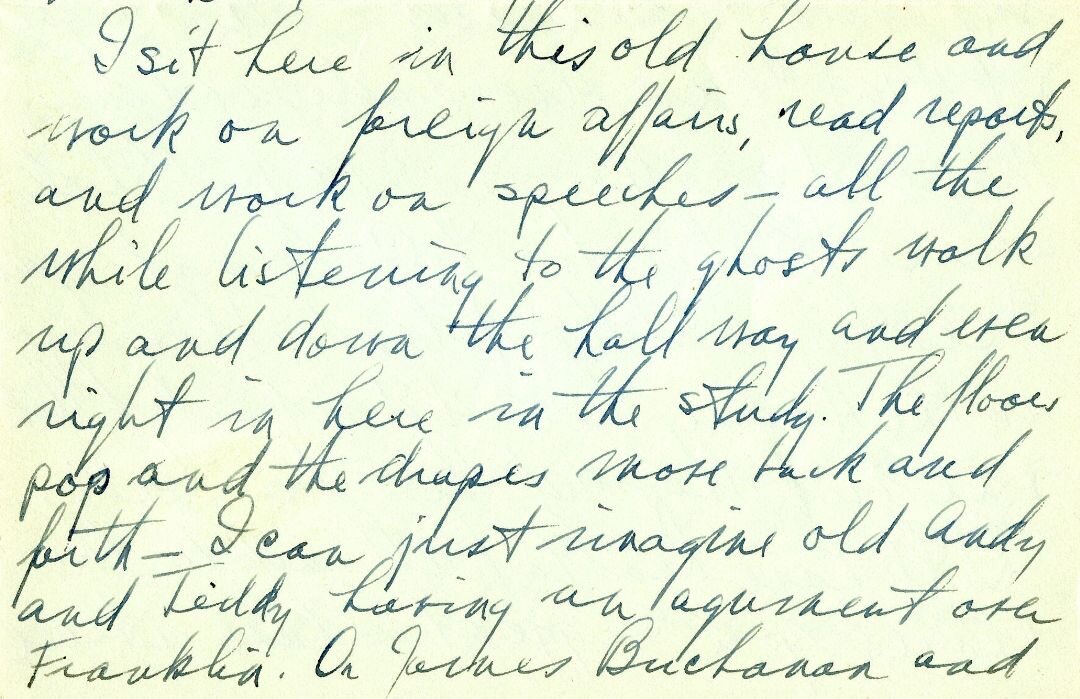 I sit here in this old house and
work on foreign affairs, read reports,
and work on speeches – all the
while listening to the ghosts walk
up and down the hall way and even
right in here in the study. The floors
pop and the drapes move back and
forth – I can just imagine old Andy
and Teddy having an agurment over
Franklin. Or James Buchanan and